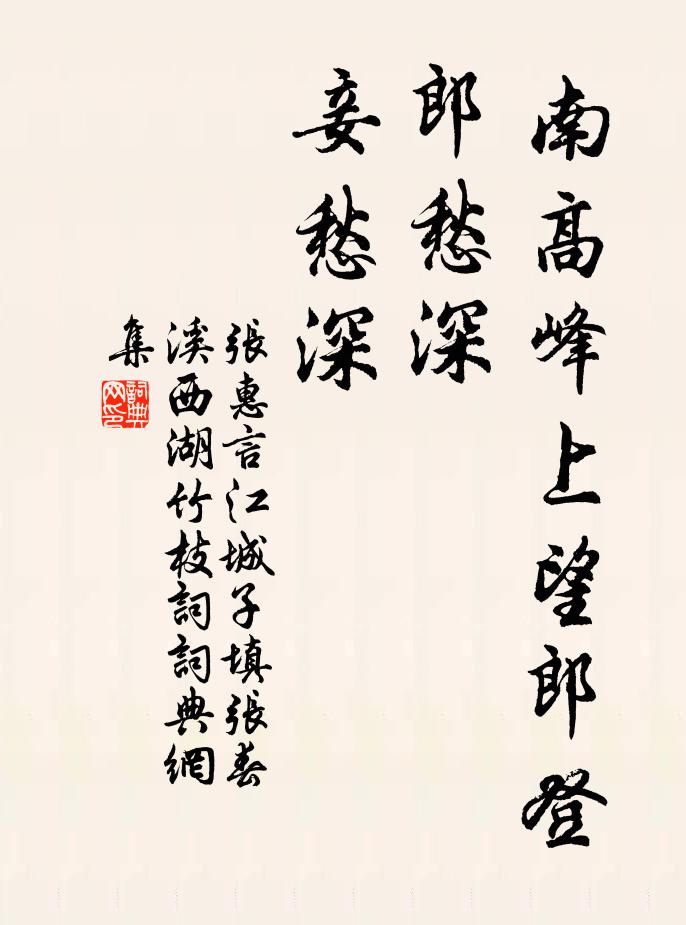 南高峰上望郎登
郎愁深
妾愁深
張惠言江城子填張春
溪西湖竹枝詞詞典網
集
詞典
网印